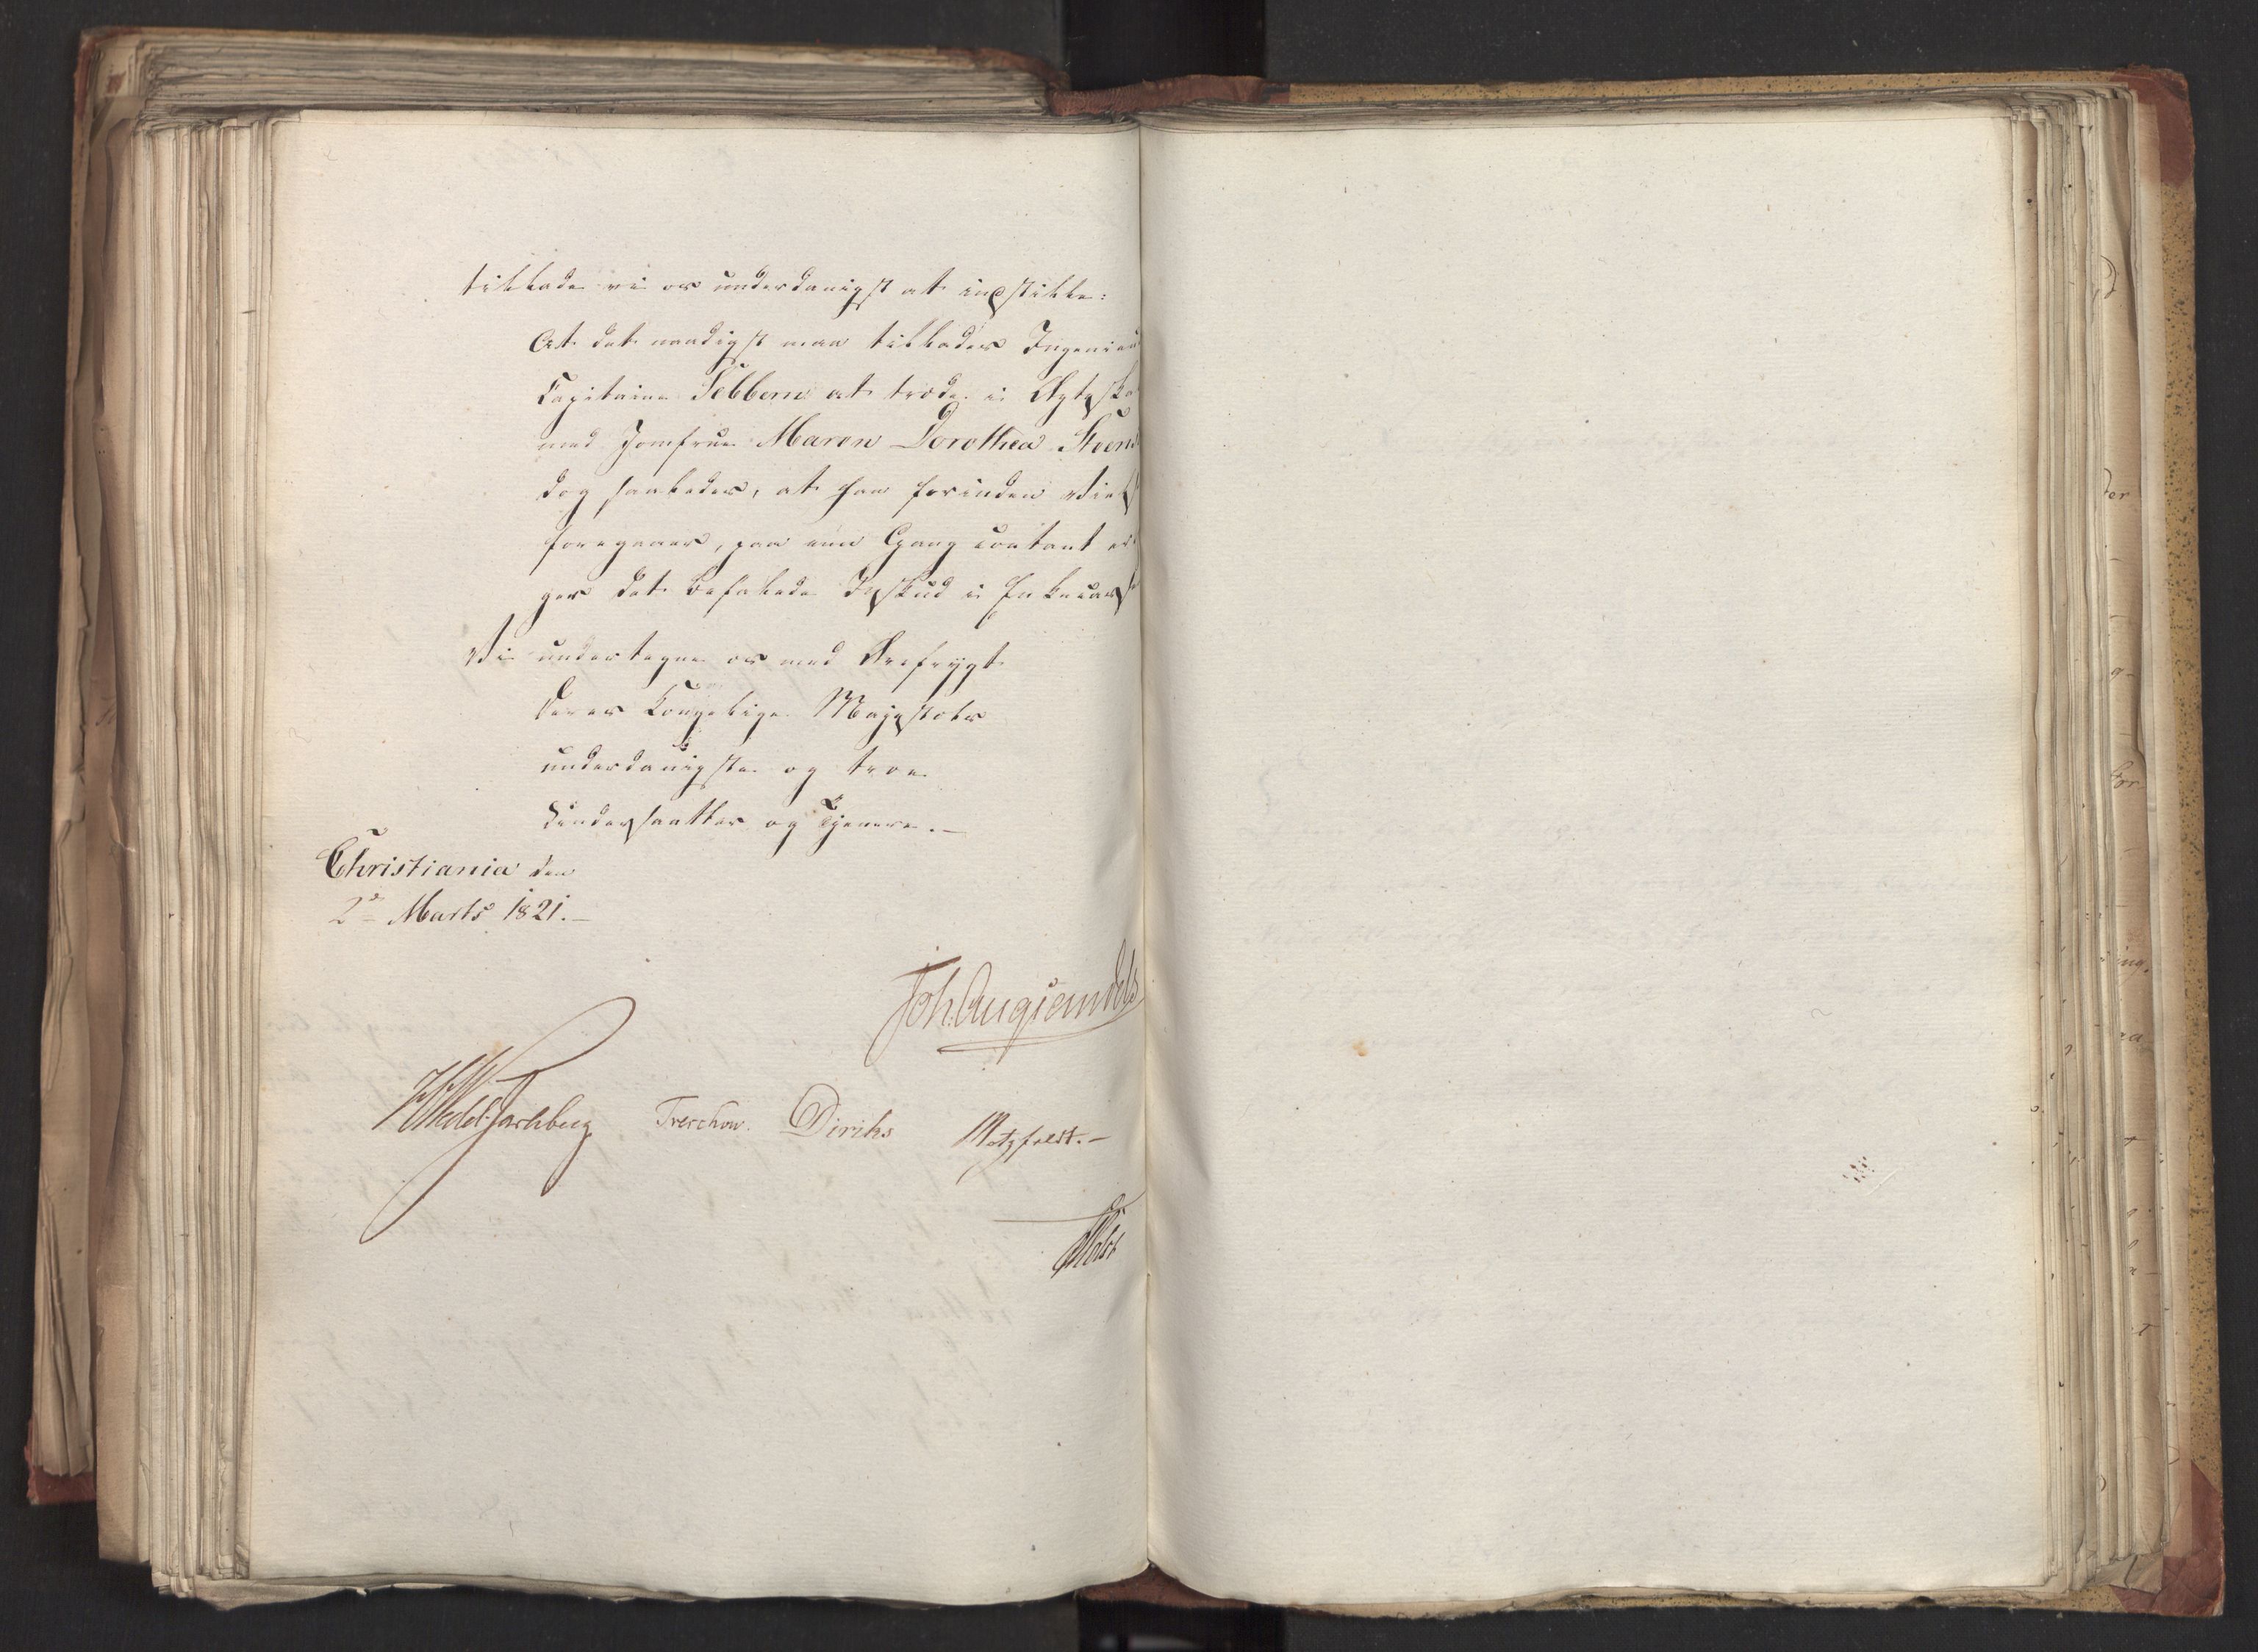 tillade vi os underdanigst at indstille:
At det naadigst maa tillades Ingenieur
Capitaine Sebbem at træde i Ægteska
med Jomfrue Maren Dorothea Steen
dog saaledes, at han forinden Viel
foregaaer, paa een Gang contant er
ger det befalede Indskud i Enkecass
Vi undertegne os med Ærefrygt
Deres Kongelige Majestæts
underdanigste og troe
Undersaatter og Tjenere.—
Christiania den
2den Marts 1821.—
Joh. Aug Sandels
HWedel Jarlsberg Treschow. Diriks Motzfeldt.—
Holst